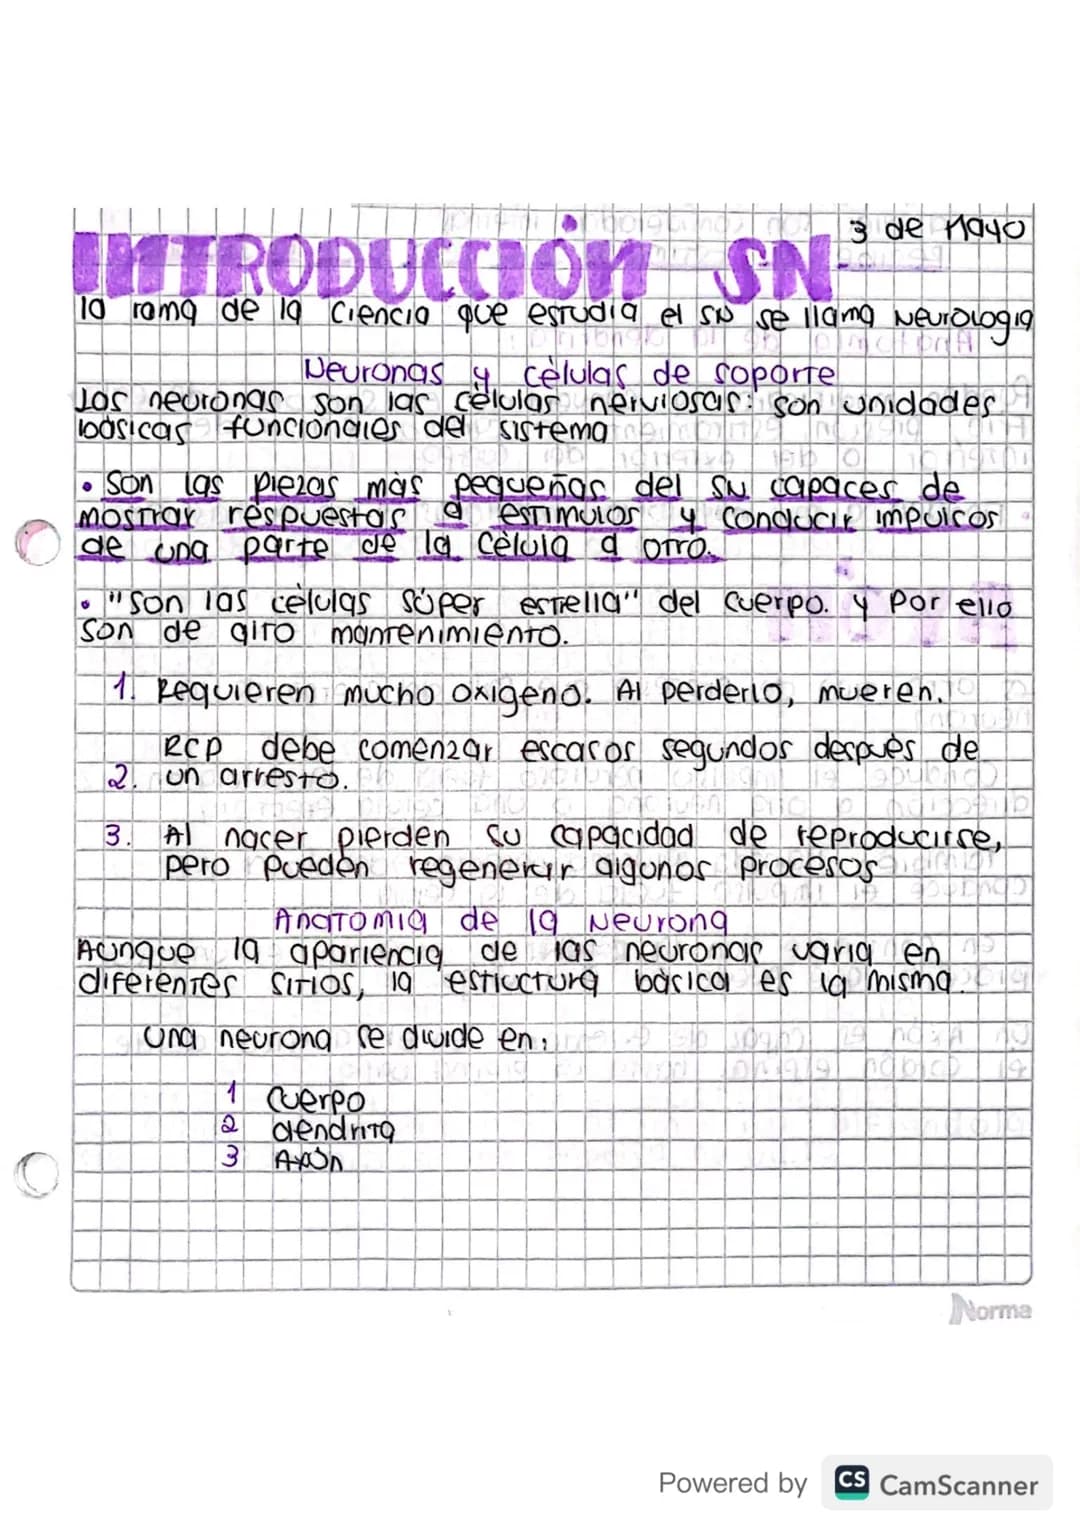 3 de Mayo
INTRODUCCIÓN SN
la rama de la ciencia que estudia el SN se llama Neurologia
Neuronas y células de soporte
Las neuronas son las células nerviosas: son unidades
básicas funcionales del sistema
• Son las piezas más pequeñas del SN capaces de
mostrar respuestas a estimulos y conducir impulsos
de una parte de la célula a otro.
• "Son las células súper estrella" del cuerpo. y por ello
son de alto mantenimiento.
1. Requieren mucho oxigeno. Al perderlo, mueren.
RCP debe comenzar escasos segundos después de
2. un arresto.
3. Al nacer pierden su capacidad de reproducirse,
pero pueden regenerar algunos procesos
Anatomia de la Neurona
Aunque la apariencia de las neuronas varia en
diferentes sitios, la estructura básica es la misma.
una neurona se divide en:
1 Cuerpo
2 dendrita
3 Axón
Norma
Powered by CS CamScanner